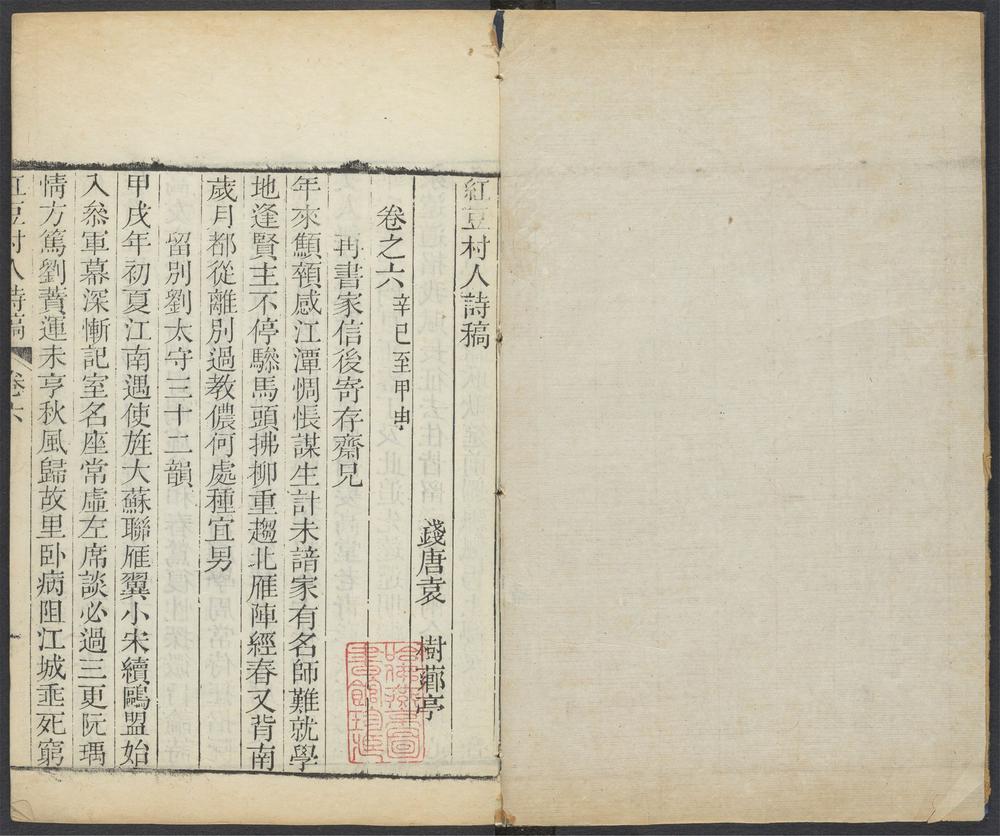 紅豆村人詩稿
錢唐袁 樹薌亭
卷之六 辛巳至甲申
再書家信後寄存齋兄
年來顦顇感江潭惆悵謀生計未諳家有名師難就學
地逢賢主不停驂馬頭拂柳重趨北雁陣經春又背南
歲月都從離別過教儂何處種宜男
留別劉太守三十二韻
甲戌年初夏江南遇使旌大蘇聯雁翼小宋續鷗盟始
入叅軍幕深慚記室名座常虛左席談必過三更阮瑀
情方篤劉蕡運未亨秋風歸故里卧病阻江城垂死窮
紅豆村人詩稿 卷六
哈佛燕京圖書館珍藏